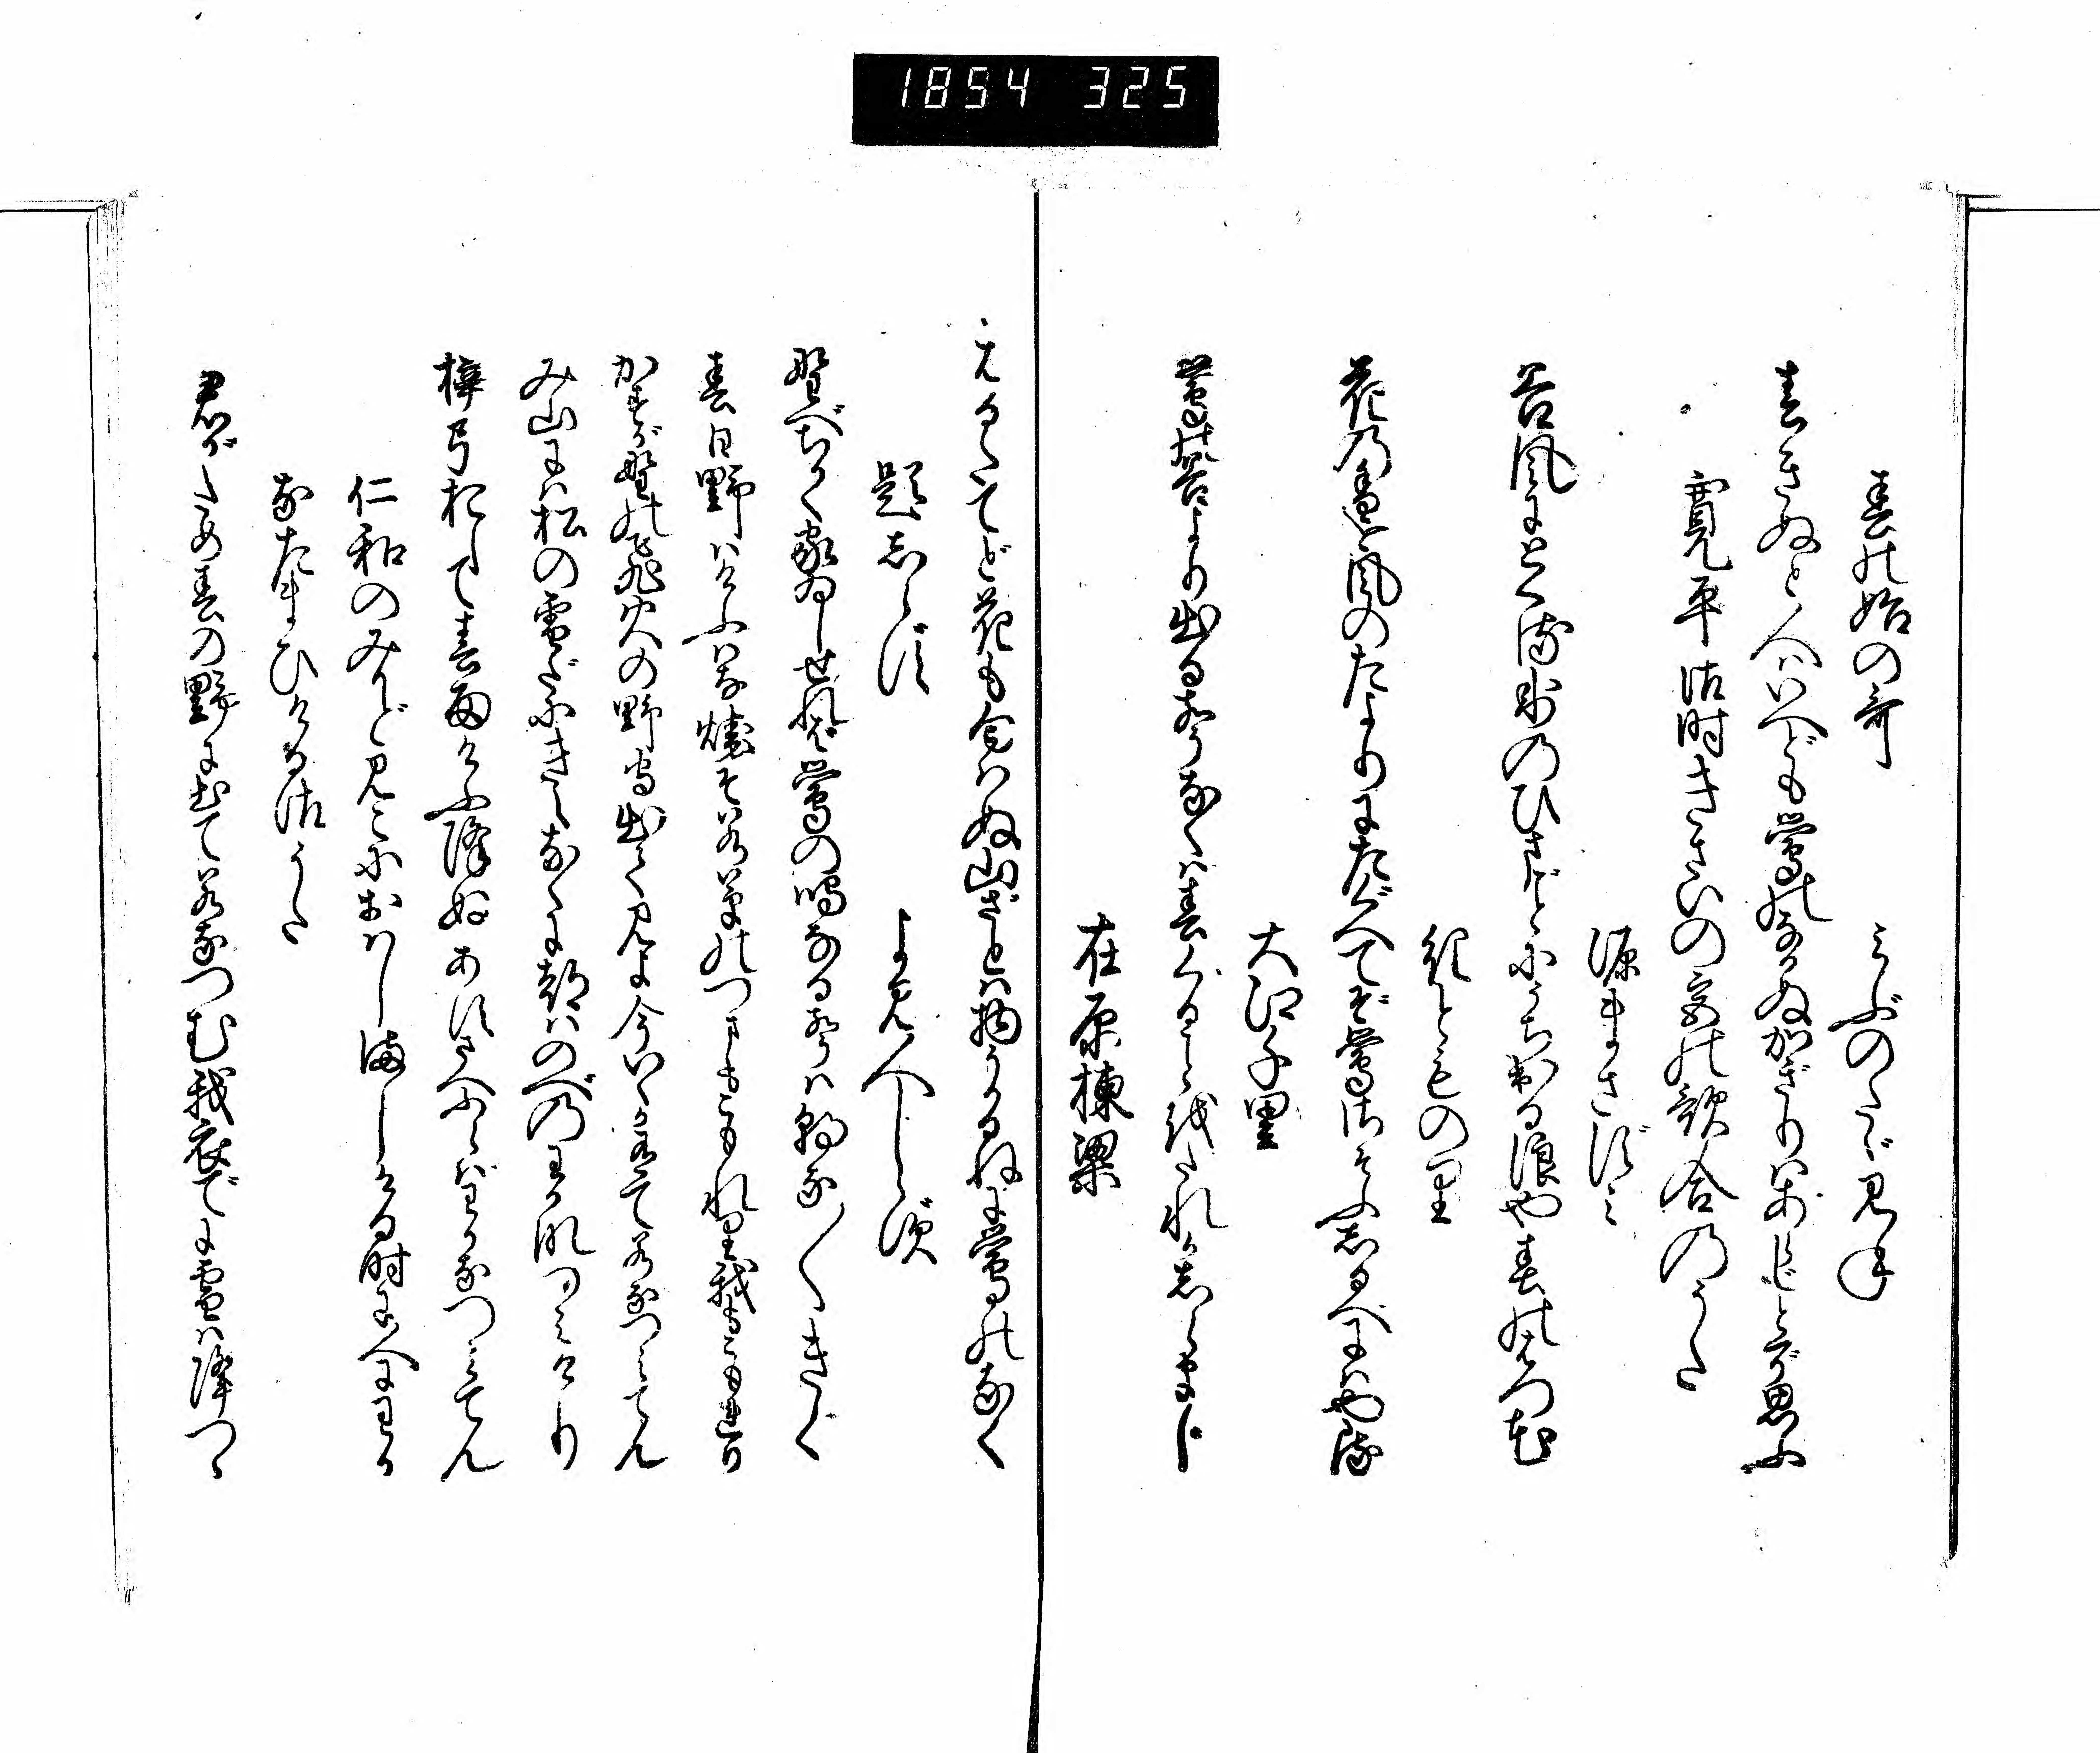 1854 325
春の始の哥　みぶのたゞ見ね
春きぬと人はいへども鶯のなかぬかぎりはあらじとぞ思ふ
寛平御時きさいの宮の歌合のうた
源まさずみ
谷風にとくる氷のひまごとにうち出る浪や春のはつ花
紀とものり
花の香を風のたよりにたぐへてぞ鶯さそふしるべにはやる
大江千里
鶯の谷より出る声なくは春くることをたれかしらまし
在原棟梁
はるたてど花も匂はぬ山ざとは物うかるねに鶯のなく
題しらず　よみ人しらず
野べちかく家ゐしせれば鶯の鳴なる声は朝な〳〵きく
春日野はけふはな焼そ若草のつまもこもれり我もこもれり
かすが野の飛火の野守出て見よ今いくか有て若なつみてん
み山には松の雪だにきえなくに都はのべのわかなつみけり
梓弓おして春雨けふ降ぬあすさへふらばわかなつみてん
仁和のみかど見こにおはしましける時に人にわか
なたまひける御うた
君がため春の野に出て若なつむ我衣でに雪は降つゝ